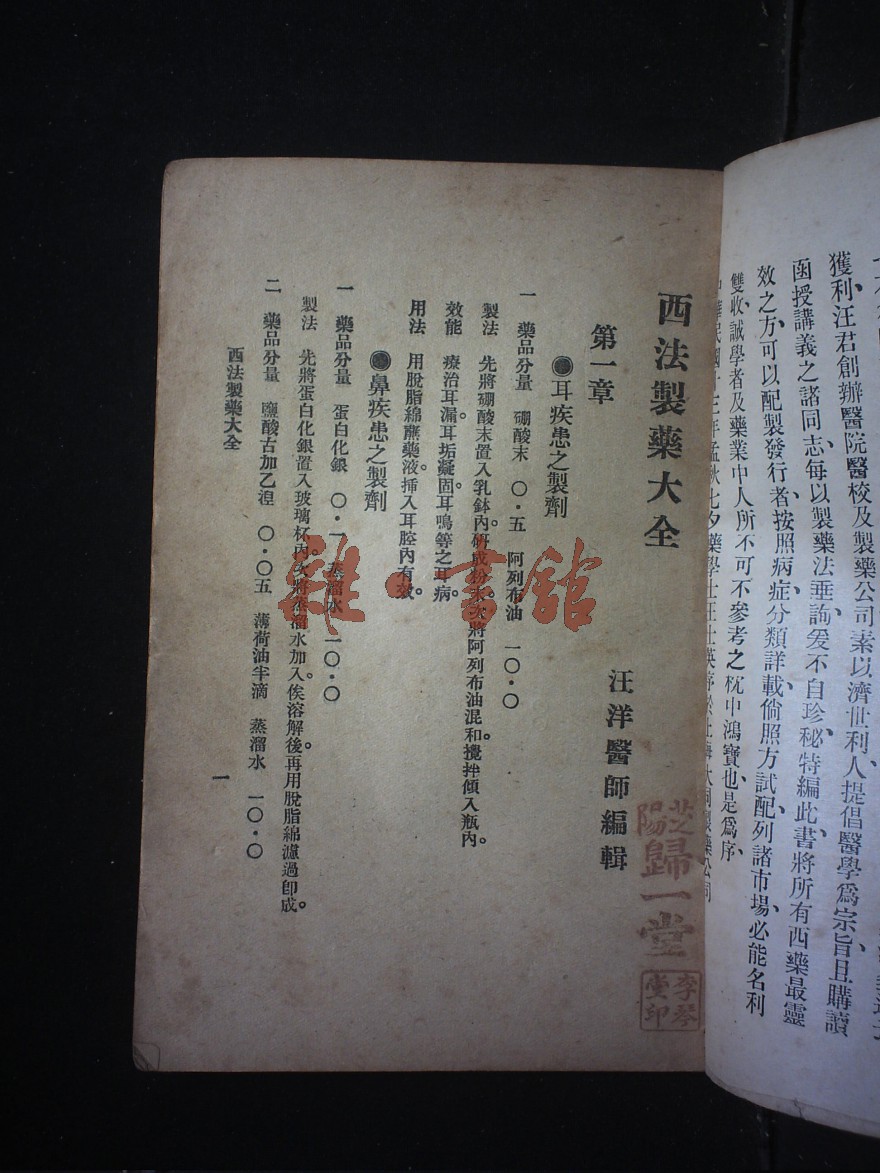 獲利、汪君創辦醫院醫校及製藥公司素以濟世利人、提倡醫學爲宗旨、且購讀
函授講義之諸同志、每以製藥法垂詢、爰不自珍秘、特編此書、將所有西藥最靈
效之方、可以配製發行者、按照病症分類詳載、倘照方試配、列諸市場、必能名利
雙收、誠學者及藥業中人所不可不參考之枕中鴻寶也、是爲序、
年孟秋七夕藥學士汪
西法製藥大全
汪洋醫師編輯
第一章
●耳疾患之製劑
一 藥品分量 硼酸末 〇・五 阿列布油 一〇・〇
製法 先將硼酸末置入乳鉢內。研成粉末。次將阿列布油混和攪拌傾入瓶內。
效能 療治耳漏。耳垢凝固。耳鳴等之耳病。
用法 用脫脂綿蘸藥液。揷入耳腔內有效。
●鼻疾患之製劑
一 藥品分量 蛋白化銀 〇・一 蒸溜水 一〇・〇
製法 先將蛋白化銀置入玻璃杯內。次將蒸溜水加入。俟溶解後。再用脫脂綿濾過卽成。
二 藥品分量 鹽酸古加乙湼 〇・〇五 薄荷油半滴 蒸溜水 一〇・〇
西法製藥大全
一
芝陽
歸一堂
李琴堂印
雜・書館